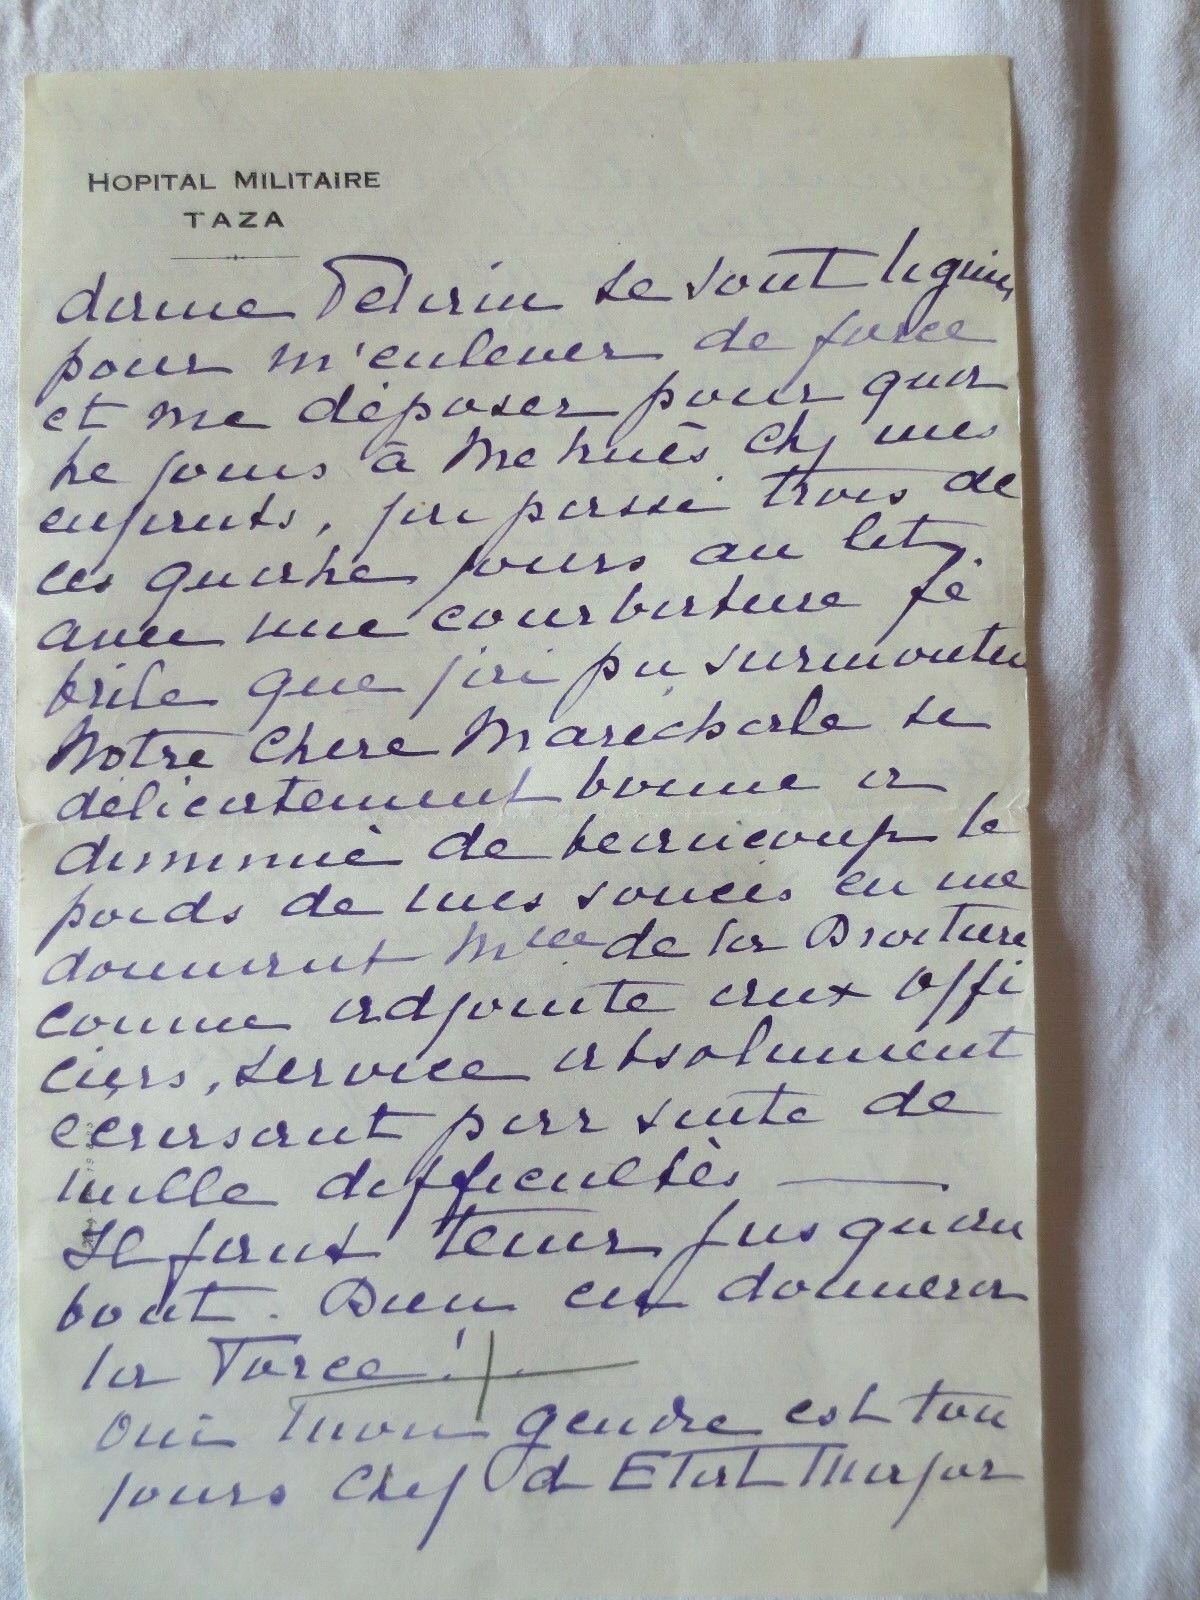 HOPITAL MILITAIRE
TAZA
dame se sont liguées
pour m'enlever de force
et me déposer pour quat
re jours à Meknès chez mes
enfants, j'ai passé trois de
ces quatre jours au lit
avec une courbature fé
brile que j'ai pu surmonter
Notre Chère Maréchale se
délicatement bonne a
diminué de beaucoup le
poids de mes soucis en me
donnant Mlle de la
comme adjointe aux offi
ciers, service absolument
écrasant par suite de
mille difficultés —
Il faut tenir jusqu'au
bout. Dieu en donnera
la Force!
Oui mon gendre est tou
jours Chef d Etat Major